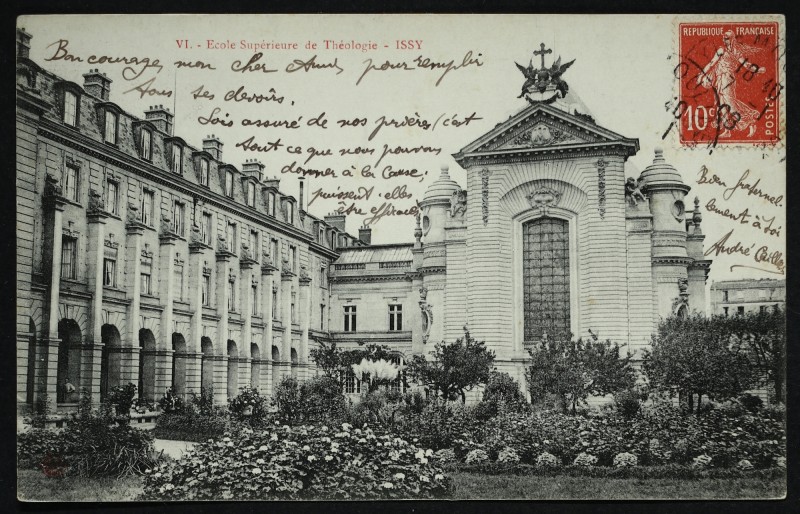 VI. - Ecole Supérieure de Théologie - ISSY
Bon courage, mon cher Ami, pour remplir
tous ses devoirs.
Sois assuré de nos prières, (c'est
tout ce que nous pouvons
donner à la Cause,
puissent-elles
être efficaces
Bien fraternel-
lement à toi
André
REPUBLIQUE FRANÇAISE
10c
POSTES
18-10